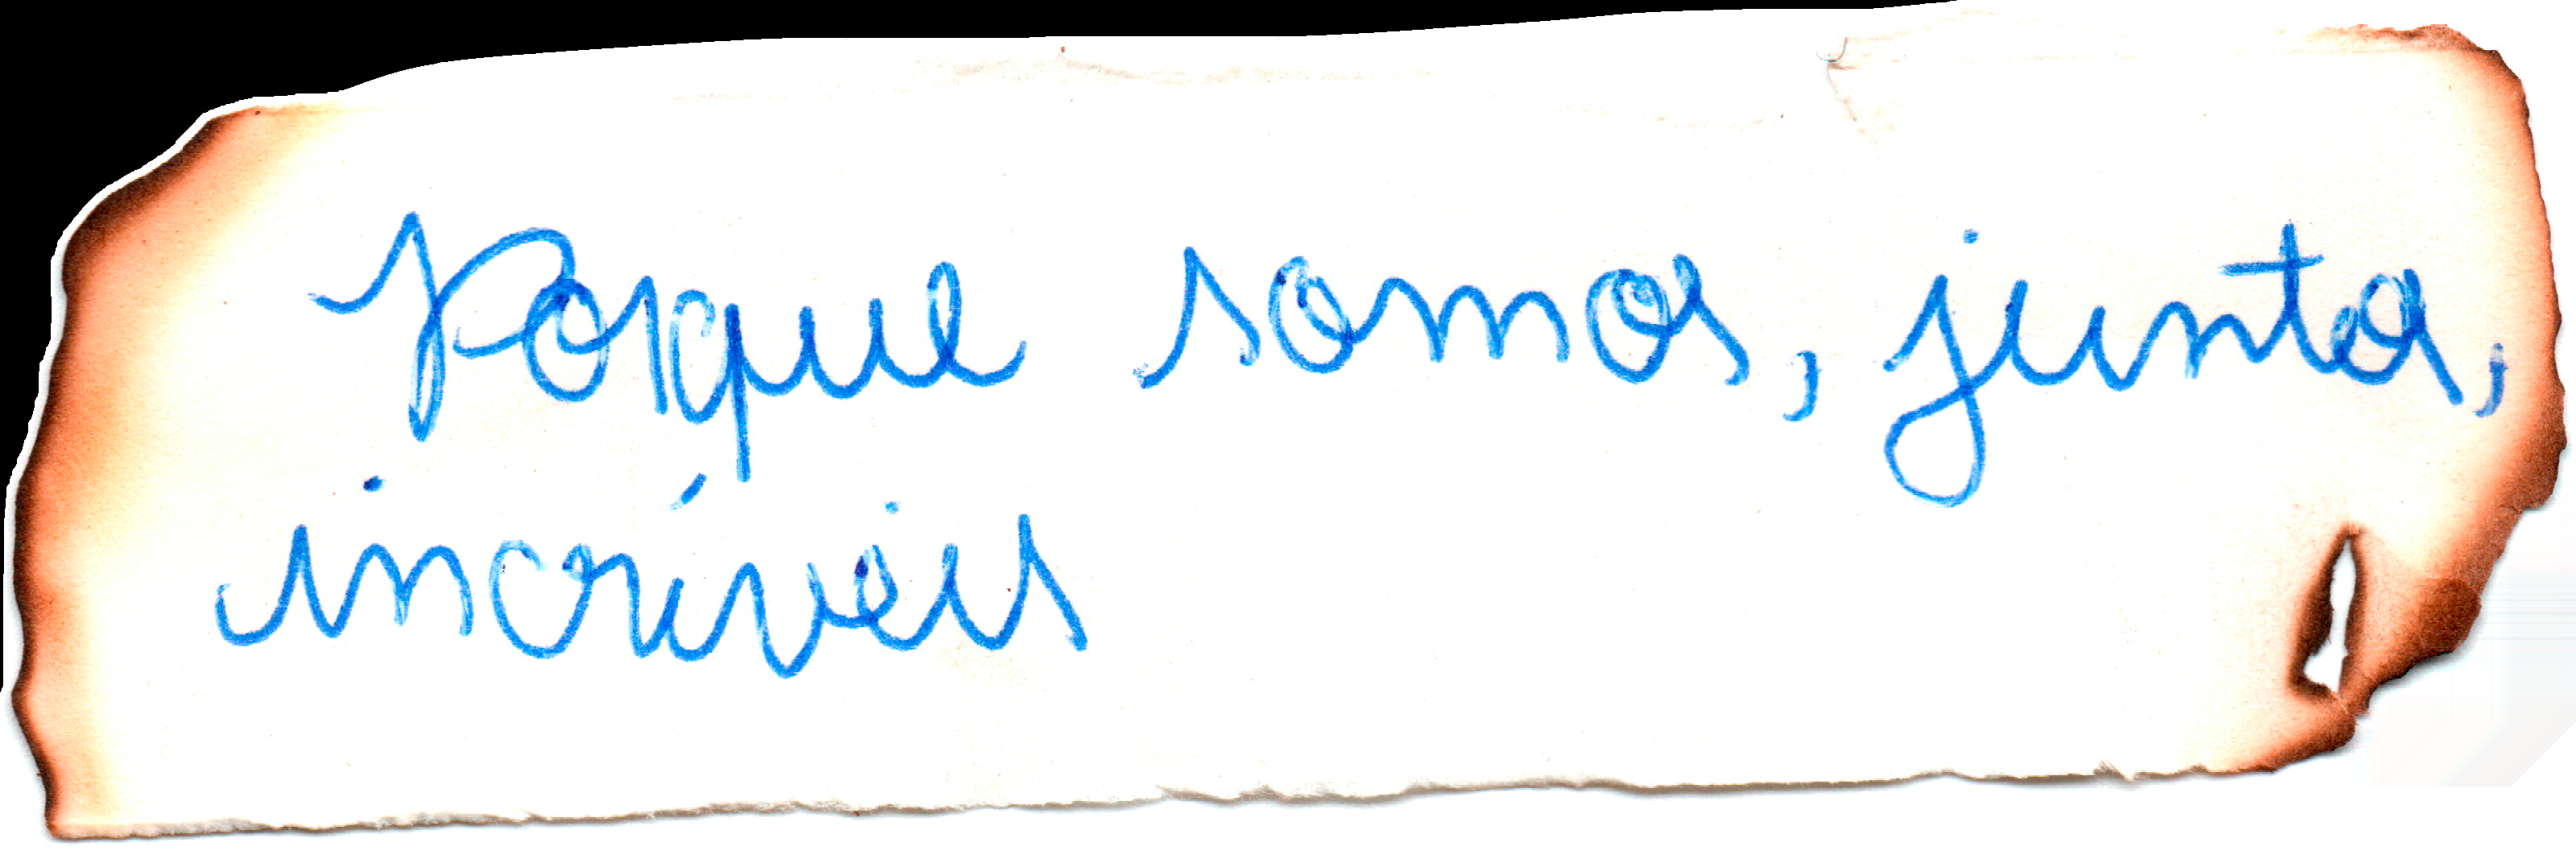 Porque somos, juntos,
incríveis